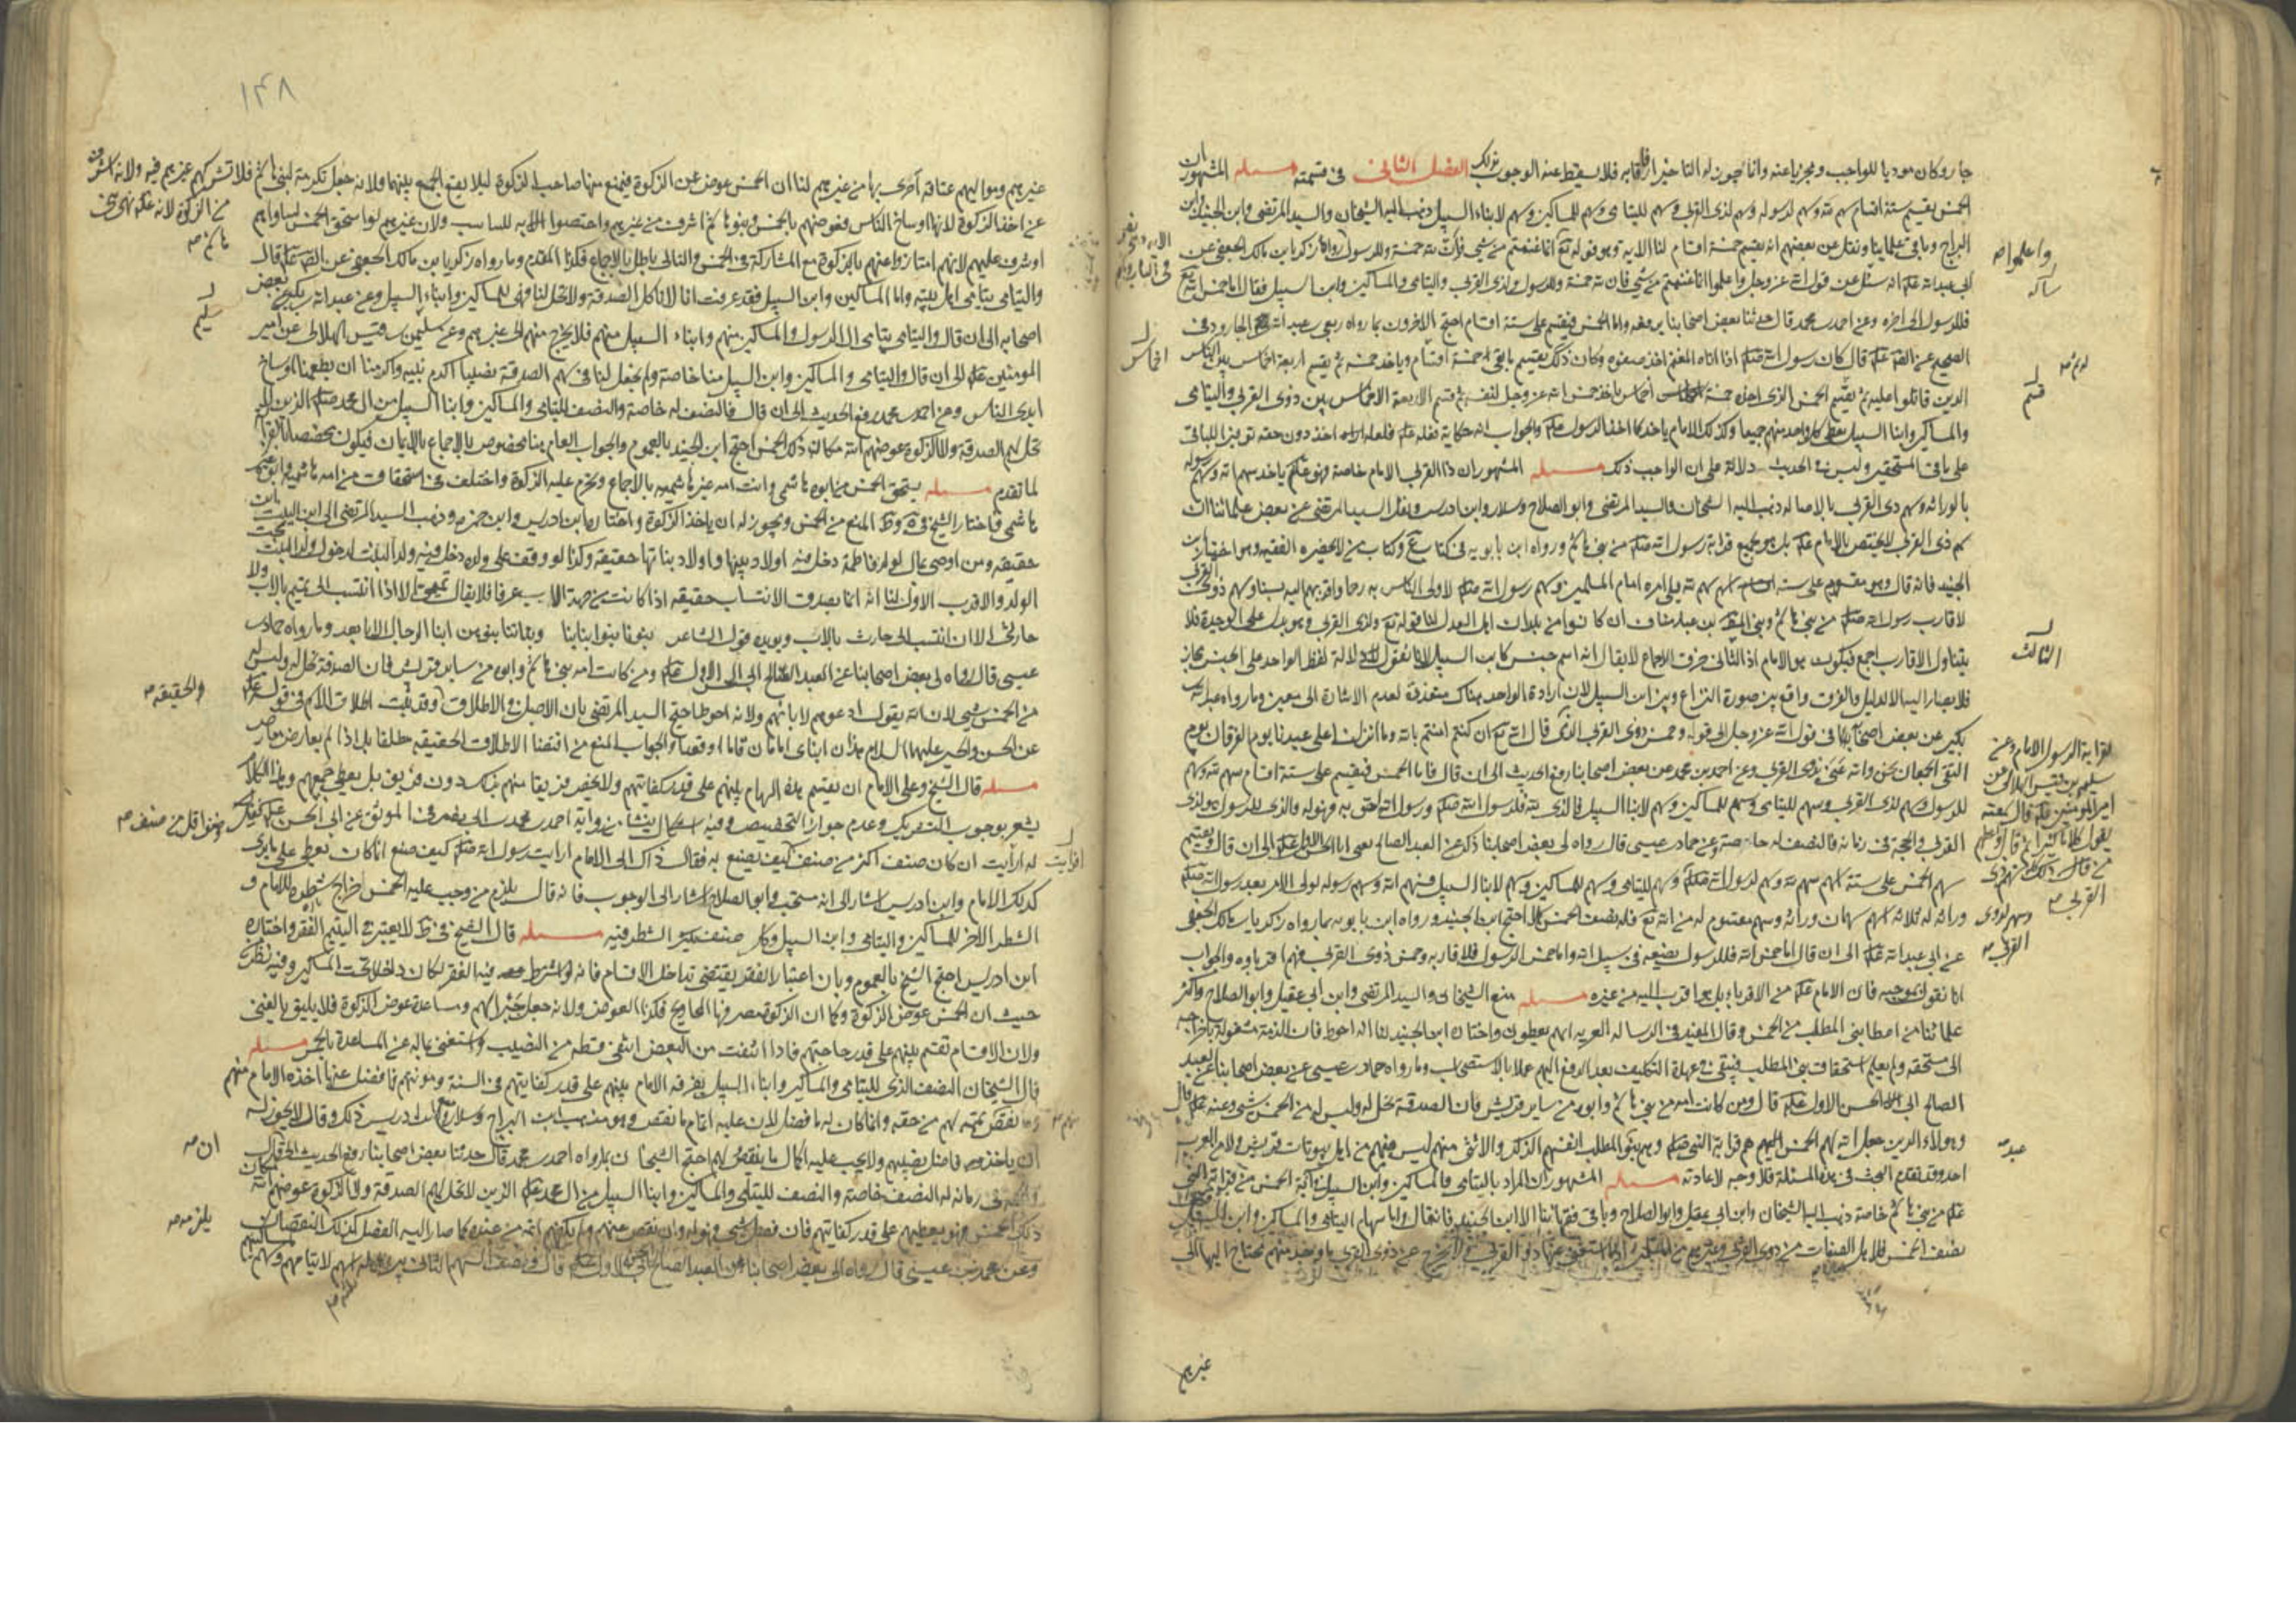 جاز وكان موديا للواجب ومجزيا عنه وانما يجوز له التاخير ارفاقا به فلا يسقط عنه الوجوب بذلك الفصل الثاني في قسمته مسئله المشهور ان
الخمس يقسم ستة اقسام سهم لله وسهم لرسوله وسهم لذي القربى وسهم لليتامى وسهم للمساكين وسهم لابناء السبيل ذهب اليه الشيخان والسيد المرتضى وابن الجنيد وابن
البراج وباقي علماينا ونقل عن بعضهم انه يقسم خمسة اقسام لنا الاية وهو قوله تع انما غنمتم من شي فان لله خمسه وللرسول وما رواه زكريا بن مالك الجعفي عن
ابي عبد الله عله انه سئل عن قول الله عز وجل واعلموا انما غنمتم من شي فان لله خمسه وللرسول ولذي القربى واليتامى والمساكين وابن السبيل فقال اما خمس الله تع
فللرسول الى اخره وعن احمد بن محمد قال حدثنا بعض اصحابنا رفعه واما الخمس فيقسم على ستة اقسام احتج الاخرون بما رواه ربعي بن عبد الله بن الجارود في
الصحيح عن الصه عله قال كان رسول الله صله اذا اتاه المغنم اخذ صفوه وكان ذلك له ثم يقسم ما بقي خمسة اقسام وياخذ خمسه ثم يقسم اربعة اخماس بين الناس
الذين قاتلوا عليه ثم يقسم الخمس الذي اخذه خمسة اخماس ياخذ خمس الله عز وجل لنفسه ثم قسم الاربعة الاخماس بين ذوي القربى واليتامى
والمساكين وابنا السبيل يعطي كل واحد منهم جميعا وكذلك الامام ياخذ كما اخذ الرسول عله والجواب انه حكاية فعله عله فلعله اخذ دون حقه توفيرا للباقي
على باقي المستحقين وليس في الحديث دلالة على ان الواجب ذلك مسئله المشهور ان ذا القربى الامام خاصة فهو عله ياخذ سهم الله وسهم رسوله
بالوراثه وسهم ذي القربى بالاصاله ذهب اليه الشيخان والسيد المرتضى وابو الصلاح وسلار وابن ادريس ونقل السيد المرتضى عن بعض علمائنا ان
سهم ذي القربى لا يختص بالامام عله بل هو لجميع قرابة رسول الله صله من بني هاشم ورواه ابن بابويه في كتاب المقنع وكتاب من لا يحضره الفقيه وهو اختيار ابن
الجنيد فانه قال وهو مقسوم على ستة اسهم سهم لله يلي امره امام المسلمين وسهم رسول الله صله لاولى الناس به رحما واقربهم اليه نسبا وسهم ذوي القربى
لاقارب رسول الله صله من بني هاشم وبني المطلب بن عبد مناف ان كانوا من بلدان اهل العدل لنا قوله تع ولذي القربى وهو يدل على الوحدة فلا
يتناول الاقارب اجمع فيكون هو الامام اذ الثاني خرق الاجماع لا يقال انه اسم جنس كابن السبيل لانا نقول دلالة لفظ الواحد على الجنس مجاز
فلا يصار اليه الا لدليل والفرق واقع بين صورة النزاع وبين ابن السبيل لان ارادة الواحد هناك متعذرة لعدم الاشارة الى معين وما رواه عبد الله بن
بكير عن بعض اصحابه في قول الله عز وجل الى قوله وخمس ذوي القربى الذي قال الله تع ان كنتم امنتم بالله وما انزلنا على عبدنا يوم الفرقان يوم
التقى الجمعان نحن والله عنى بذي القربى وعن احمد بن محمد عن بعض اصحابنا رفع الحديث الى ان قال فاما الخمس فيقسم على ستة اقسام سهم لله وسهم
للرسول وسهم لذي القربى وسهم لليتامى وسهم للمساكين وسهم لابنا السبيل فالذي لله فلرسول الله صله ورسول الله احق به فهو له والذي للرسول هو لذي
القربى والحجة في زمانه فالنصف له خاصة وعن حماد بن عيسى قال رواه لي بعض اصحابنا ذكره عن العبد الصالح يعني ابا الحسن الاول عله الى ان قال ويقسم
بينهم الخمس على ستة اسهم سهم لله وسهم لرسول الله صله وسهم لليتامى وسهم للمساكين وسهم لابنا السبيل فسهم الله وسهم رسوله لولي الامر بعد رسول الله صله
وراثة له ثلاثة اسهم سهمان وراثة وسهم مقسوم له من الله تع فله نصف الخمس كملا احتج ابن الجنيد ورواه ابن بابويه بما رواه زكريا بن مالك الجعفي
عن ابي عبد الله عله الى ان قال اما خمس الله فللرسول يضعه في سبيل الله واما خمس الرسول فلاقاربه وخمس ذوي القربى فهم اقرباوه والجواب
انا نقول بموجبه فان الامام عله من الاقرباء بل هو اقرب اليه من غيره مسئله منع الشيخان والسيد المرتضى وابن ابي عقيل وابو الصلاح واكثر
علمائنا من اعطا بني المطلب من الخمس وقال المفيد في الرسالة الغرية انهم يعطون واختاره ابن الجنيد لنا انه احوط فان الذمة مشغولة باخراجه
الى مستحقه ولم يعلم استحقاق بني المطلب فيبقى في عهدة التكليف بعد الدفع اليهم عملا بالاستصحاب وما رواه حماد بن عيسى عن بعض اصحابنا عن العبد
الصالح ابي الحسن الاول عله قال ومن كانت امه من بني هاشم وابوه من ساير قريش فان الصدقة تحل له وليس له من الخمس شي وعنه عله قال
وهولاء الذين جعل الله لهم الخمس هم قرابة النبي صله وهم بنو عبد المطلب انفسهم الذكر والانثى منهم ليس فيهم من اهل بيوتات قريش ولا من العرب
احد وقد تقدم البحث في هذه المسئلة فلا وجه لاعادته مسئله المشهور ان المراد باليتامى والمساكين وابن السبيل في اية الخمس من قرابة النبي
عله من بني هاشم خاصة ذهب اليه الشيخان وابن ابي عقيل وابو الصلاح وباقي فقهائنا الا ابن الجنيد فانه قال واما سهام اليتامى والمساكين وابن السبيل
نصف الخمس فلاهل الصفات من ذوي القربى وغيرهم من المسلمين اذا استغنى عنها ذوو القربى
واعلموا صه
قسم
الثالث
لقرابة الرسول الامام وعن
سليم بن قيس الهلالي عن
امير المومنين عله قال سمعته
يقول كلاما كثيرا ثم قال
القربى صه
وسهم لذوي
القربى صه
عبد صه
اخماس
غيرهم
١٤٨
غيرهم ومواليهم عتاقه احرى بها من غيرهم لنا ان الخمس عوض عن الزكوة فيمنع منها صاحب الزكوة ليلا يقع الجمع بينهما ولانه جعل تكرمة لبني هاشم فلا تشركهم غيرهم فيه ولانه اشرف
من الزكوة لانه عله نهى بني
هاشم صه
عن اخذ الزكوة لانها اوساخ الناس فعوضهم بالخمس وبنو هاشم اشرف من غيرهم واختصوا به للمناسب ولان غيرهم لو استحق الخمس لساواهم
او شرف عليهم لانهم امتازوا عنهم بالزكوة مع المشاركة في الخمس والتالي باطل بالاجماع فكذا المقدم وما رواه زكريا بن مالك الجعفي عن الصه عله قال
واليتامى يتامى اهل بيته واما المساكين وابن السبيل فقد عرفت انا لا ناكل الصدقة ولا تحل لنا فهي للمساكين وابناء السبيل وعن عبد الله بن بكير عن بعض
اصحابه الى ان قال واليتامى يتامى ال الرسول والمساكين منهم وابناء السبيل منهم فلا يخرج منهم الى غيرهم وعن سليمن بن قيس الهلالي عن امير
المومنين عله الى ان قال واليتامى والمساكين وابن السبيل منا خاصة ولم يجعل لنا في سهم الصدقة نصيبا اكرم الله نبيه واكرمنا ان يطعمنا اوساخ
ايدي الناس وعن احمد بن محمد رفع الحديث الى ان قال فالنصف له خاصة والنصف لليتامى والمساكين وابنا السبيل من ال محمد صله الذين لا
تحل لهم الصدقة ولا الزكوة عوضهم الله مكان ذلك الخمس احتج ابن الجنيد بالعموم والجواب العام هنا مخصوص بالاجماع بالايمان فيكون مخصصا بالقرابة
لما تقدم مسئله يستحق الخمس من ابوه هاشمي وان كانت امه غير هاشميه بالاجماع وتحرم عليه الزكوة واختلف في استحقاق من امه هاشميه وابوه غير
هاشمي فاختار الشيخ في يه وط المنع من الخمس ويجوز له ان ياخذ الزكوة واختاره ابن ادريس وابن حمزه وذهب السيد المرتضى الى ان ابن البنت ابن
حقيقه ومن اوصى بمال لولد فاطمة دخل فيه اولاد بنيها واولاد بناتها حقيقه وكذا لو وقف على ولده دخل فيه ولد البنت لدخول ولد البنت تحت
الولد والاقرب الاول لنا انه انما يصدق الانتساب حقيقه اذا كانت من جهة الاب عرفا فلا يقال تميمي الا اذا انتسب الى تميم بالاب ولا
حارثي الا ان انتسب الى حارث بالاب ويويده قول الشاعر بنونا بنو ابنائنا وبناتنا بنوهن ابنا الرجال الاباعد وما رواه حماد بن
عيسى قال رواه لي بعض اصحابنا عن العبد الصالح ابي الحسن الاول عله ومن كانت امه من بني هاشم وابوه من ساير قريش فان الصدقة تحل له وليس له
من الخمس شي لان الله يقول ادعوهم لابائهم ولانه احوط احتج السيد المرتضى بان الاصل في الاطلاق الحقيقه وقد ثبت اطلاق الاسم في قوله عله
عن الحسن والحسين عليهما السلام هذان ابناي امامان قاما او قعدا والجواب المنع من اقتضا الاطلاق الحقيقه مطلقا بل اذا لم يعارض معارض
مسئله قال الشيخ وعلى الامام ان يقسم هذه السهام بينهم على قدر كفايتهم ولا يخص فريقا منهم بذلك دون فريق بل يعطي جميعهم وهذا الكلام
يشعر بوجوب التشريك وعدم جواز التخصيص وفيه اشكال ينشا من رواية احمد بن محمد بن ابي نصر في الموثق عن ابي الحسن عله
له افرايت ان كان صنف اكثر من صنف كيف يصنع به فقال ذاك الى الامام ارايت رسول الله صله كيف صنع انما كان يعطي على ما يرى
كذلك الامام وابن ادريس اشار الى انه مستحب وابو الصلاح اشار الى الوجوب فانه قال يلزم من وجب عليه الخمس اخراج شطره للامام و
الشطر الاخر للمساكين واليتامى وابن السبيل مسئله قال الشيخ في ط لا يعتبر في اليتيم الفقر واختاره
ابن ادريس احتج الشيخ بالعموم وبان اعتبار الفقر يقتضي تداخل الاقسام فانه لو اشترط فيه الفقر لكان داخلا تحت المساكين وفيه نظر من
حيث ان الخمس عوض الزكوة وكما ان الزكوة مصرفها المحاويج فكذا العوض ولانه جعل جبرا لهم ومساعدة عوض الزكوة فلا يليق بالغني
ولان الاقسام تقسم بينهم على قدر حاجتهم فاذا انتفت من البعض انتفى قسطه من النصيب واستغنى بماله عن المساعدة بالخمس مسئله
قال الشيخان النصف الذي لليتامى والمساكين وابناء السبيل يفرقه الامام بينهم على قدر كفايتهم في السنة ومونتهم فما فضل عنها اخذه الامام منهم
وما نقص تممه لهم من حقه وانما كان له ما فضل لان عليه اتمام ما نقص وهو مذهب ابن البراج وسلار ومنع ابن ادريس ذلك وقال لا يجوز له
ان ياخذ فاضل نصيبهم ولا يجب عليه اكمال ما ينقص لهم احتج الشيخان بما رواه احمد بن محمد قال حدثنا بعض اصحابنا رفع الحديث الى ان قال
والحجة في زمانه له النصف خاصة والنصف لليتامى والمساكين وابنا السبيل من ال محمد عله الذين لا تحل لهم الصدقة ولا الزكوة عوضهم الله مكان
ذلك الخمس فهو يعطيهم على قدر كفايتهم فان فضل شي فهو له وان نقص عنهم ولم يكفهم اتمه من عنده كما صار اليه الفضل كذلك النقصان
وعن حماد بن عيسى قال رواه لي بعض اصحابنا عن العبد الصالح ابي الحسن الاول عله قال ونصف السهم الثاني بين اهله سهم لايتامهم وسهم لمساكينهم
سليم
والحقيقه صه
افرايت
ان صه
يلزمه صه